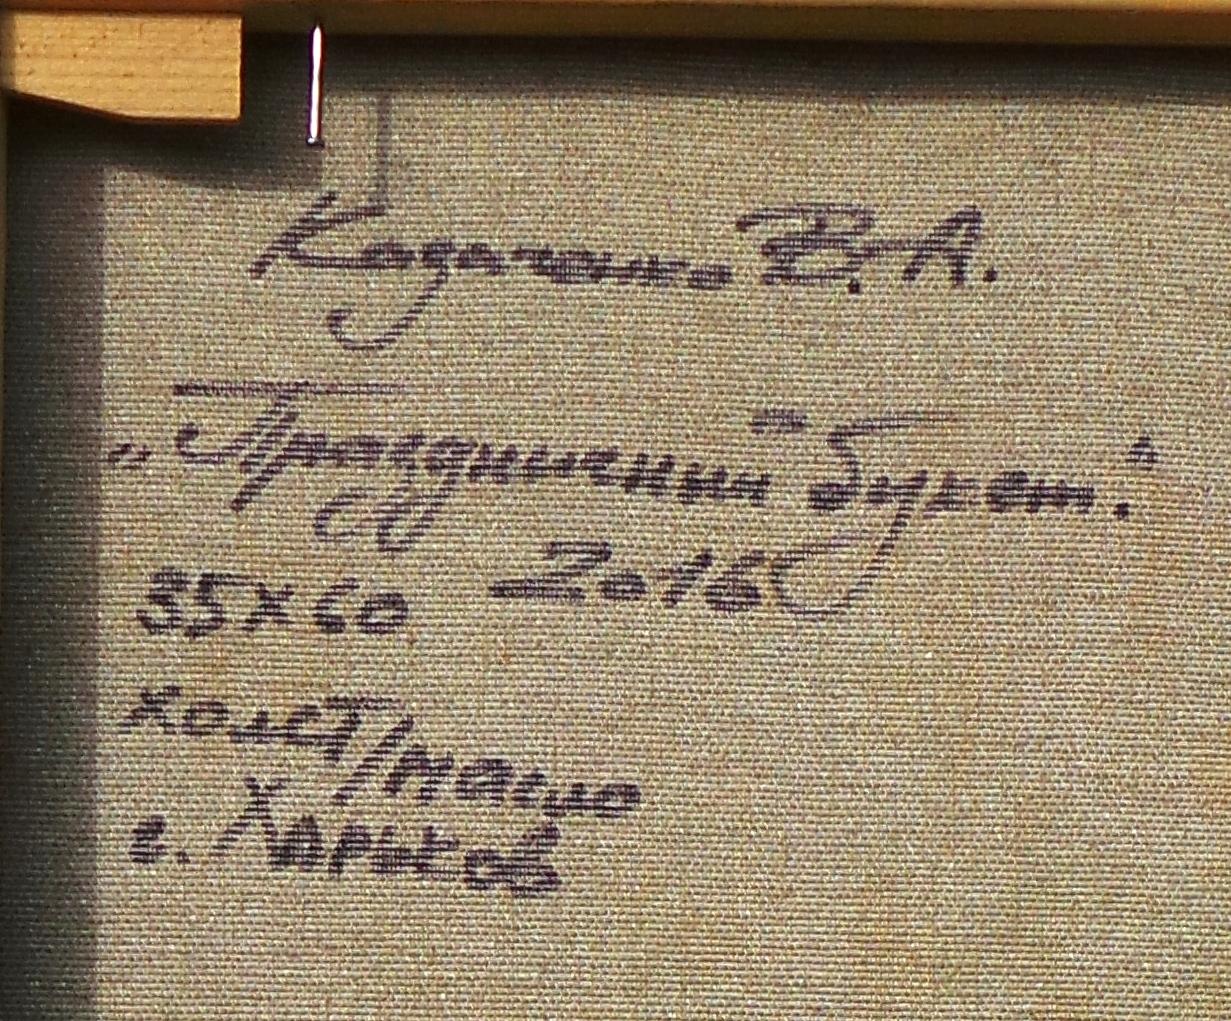 Кадаченко В.А.
„Праздничный букет."
2016
35х60
холст/масло
г. Харьков